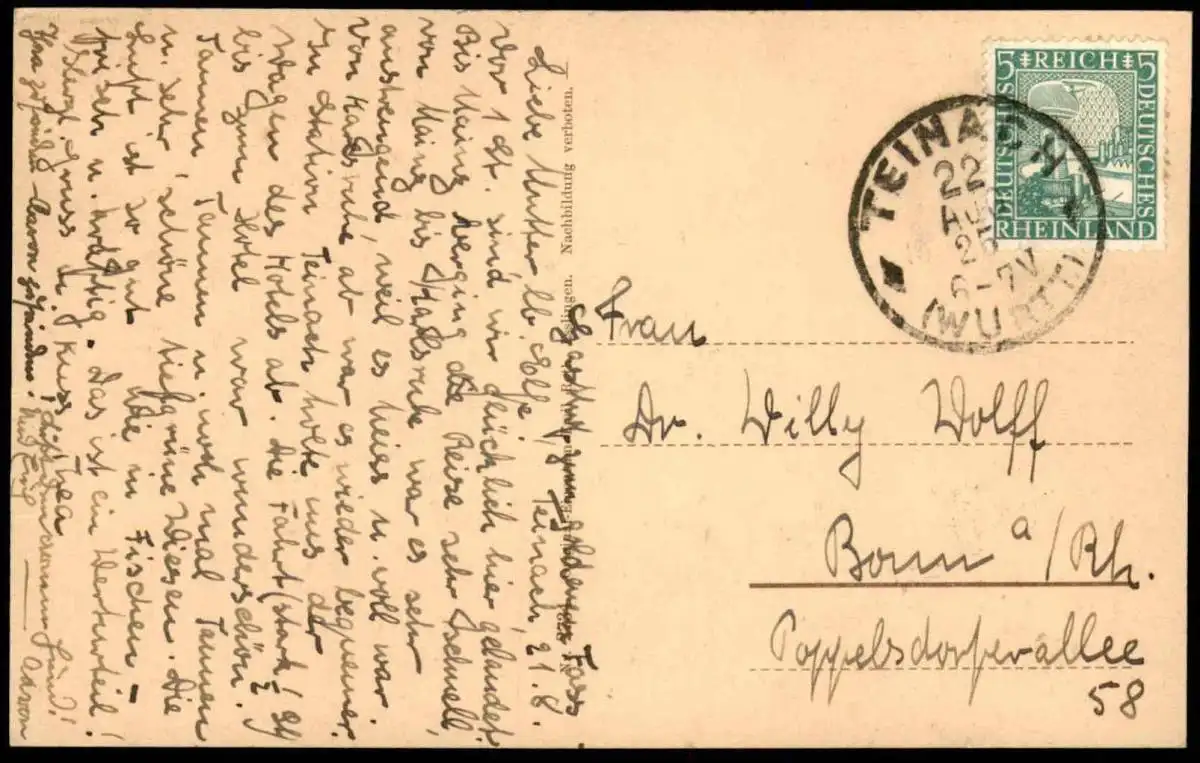 Gasthof zum goldenen Fass
Teinach, 21.8.
Liebe Mutter, lb. Else,
Vor 1 St. sind wir glücklich hier gelandet.
Bis Mainz verging die Reise sehr schnell,
von Mainz bis Karlsruhe war es sehr
anstrengend, weil es heiss u. voll war.
Von Karlsruhe ab war es wieder bequemer.
In Station Teinach holte uns der
Wagen des Hotels ab. Die Fahrt (stark
bis zum Hotel war wunderschön.
Tannen, Tannen u. noch mal Tannen
u. sehr schöne tiefgrüne Wiesen. Die
Luft ist so gut wie in Fischen
frisch u. kräftig. Das ist ein Werturteil!
Herzl. Gruss u. Kuss Thea
Nachbildung verboten.
5 REICH 5
DEUTSCHES
DEUTSCHES
RHEINLAND
TEINACH
22
AUG
6-7V
(WÜRTT)
Frau
Dr. Willy Wolff
Bonn a/Rh.
Poppelsdorferallee
58